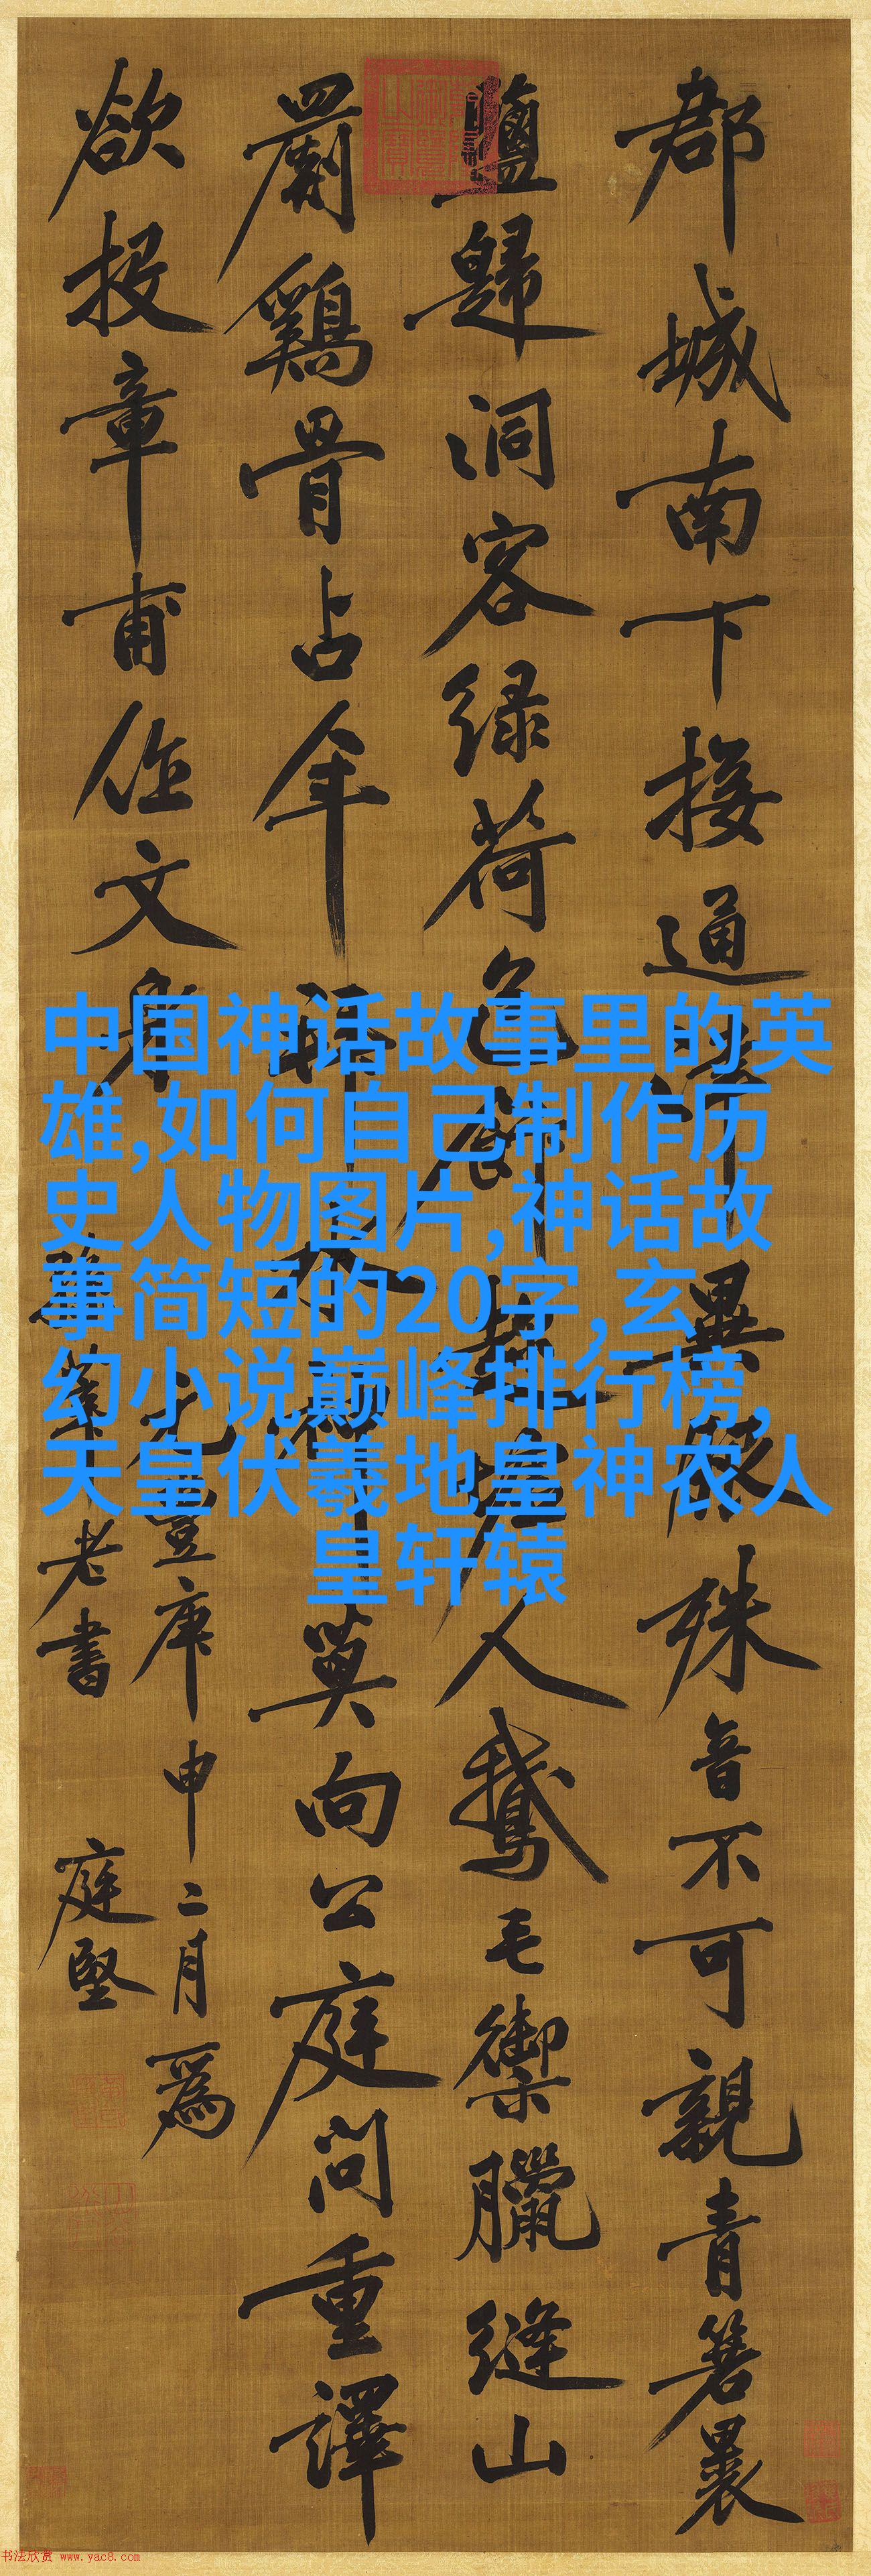 郡城南下接通異服殊音不可親青箬裹
鹽歸洞客緑荷包飯趁墟人鵝毛禦臘縫山
罽鷄骨占年莫向公庭問重譯
欲投章甫作文身
豐庚申二月為
老書
庭堅
中国神话故事里的英
雄,如何自己制作历
史人物图片,神话故
事简短的20字,玄
幻小说巅峰排行榜,
天皇伏羲地皇神农人
皇轩辕
书法欣赏 www.yac8.com